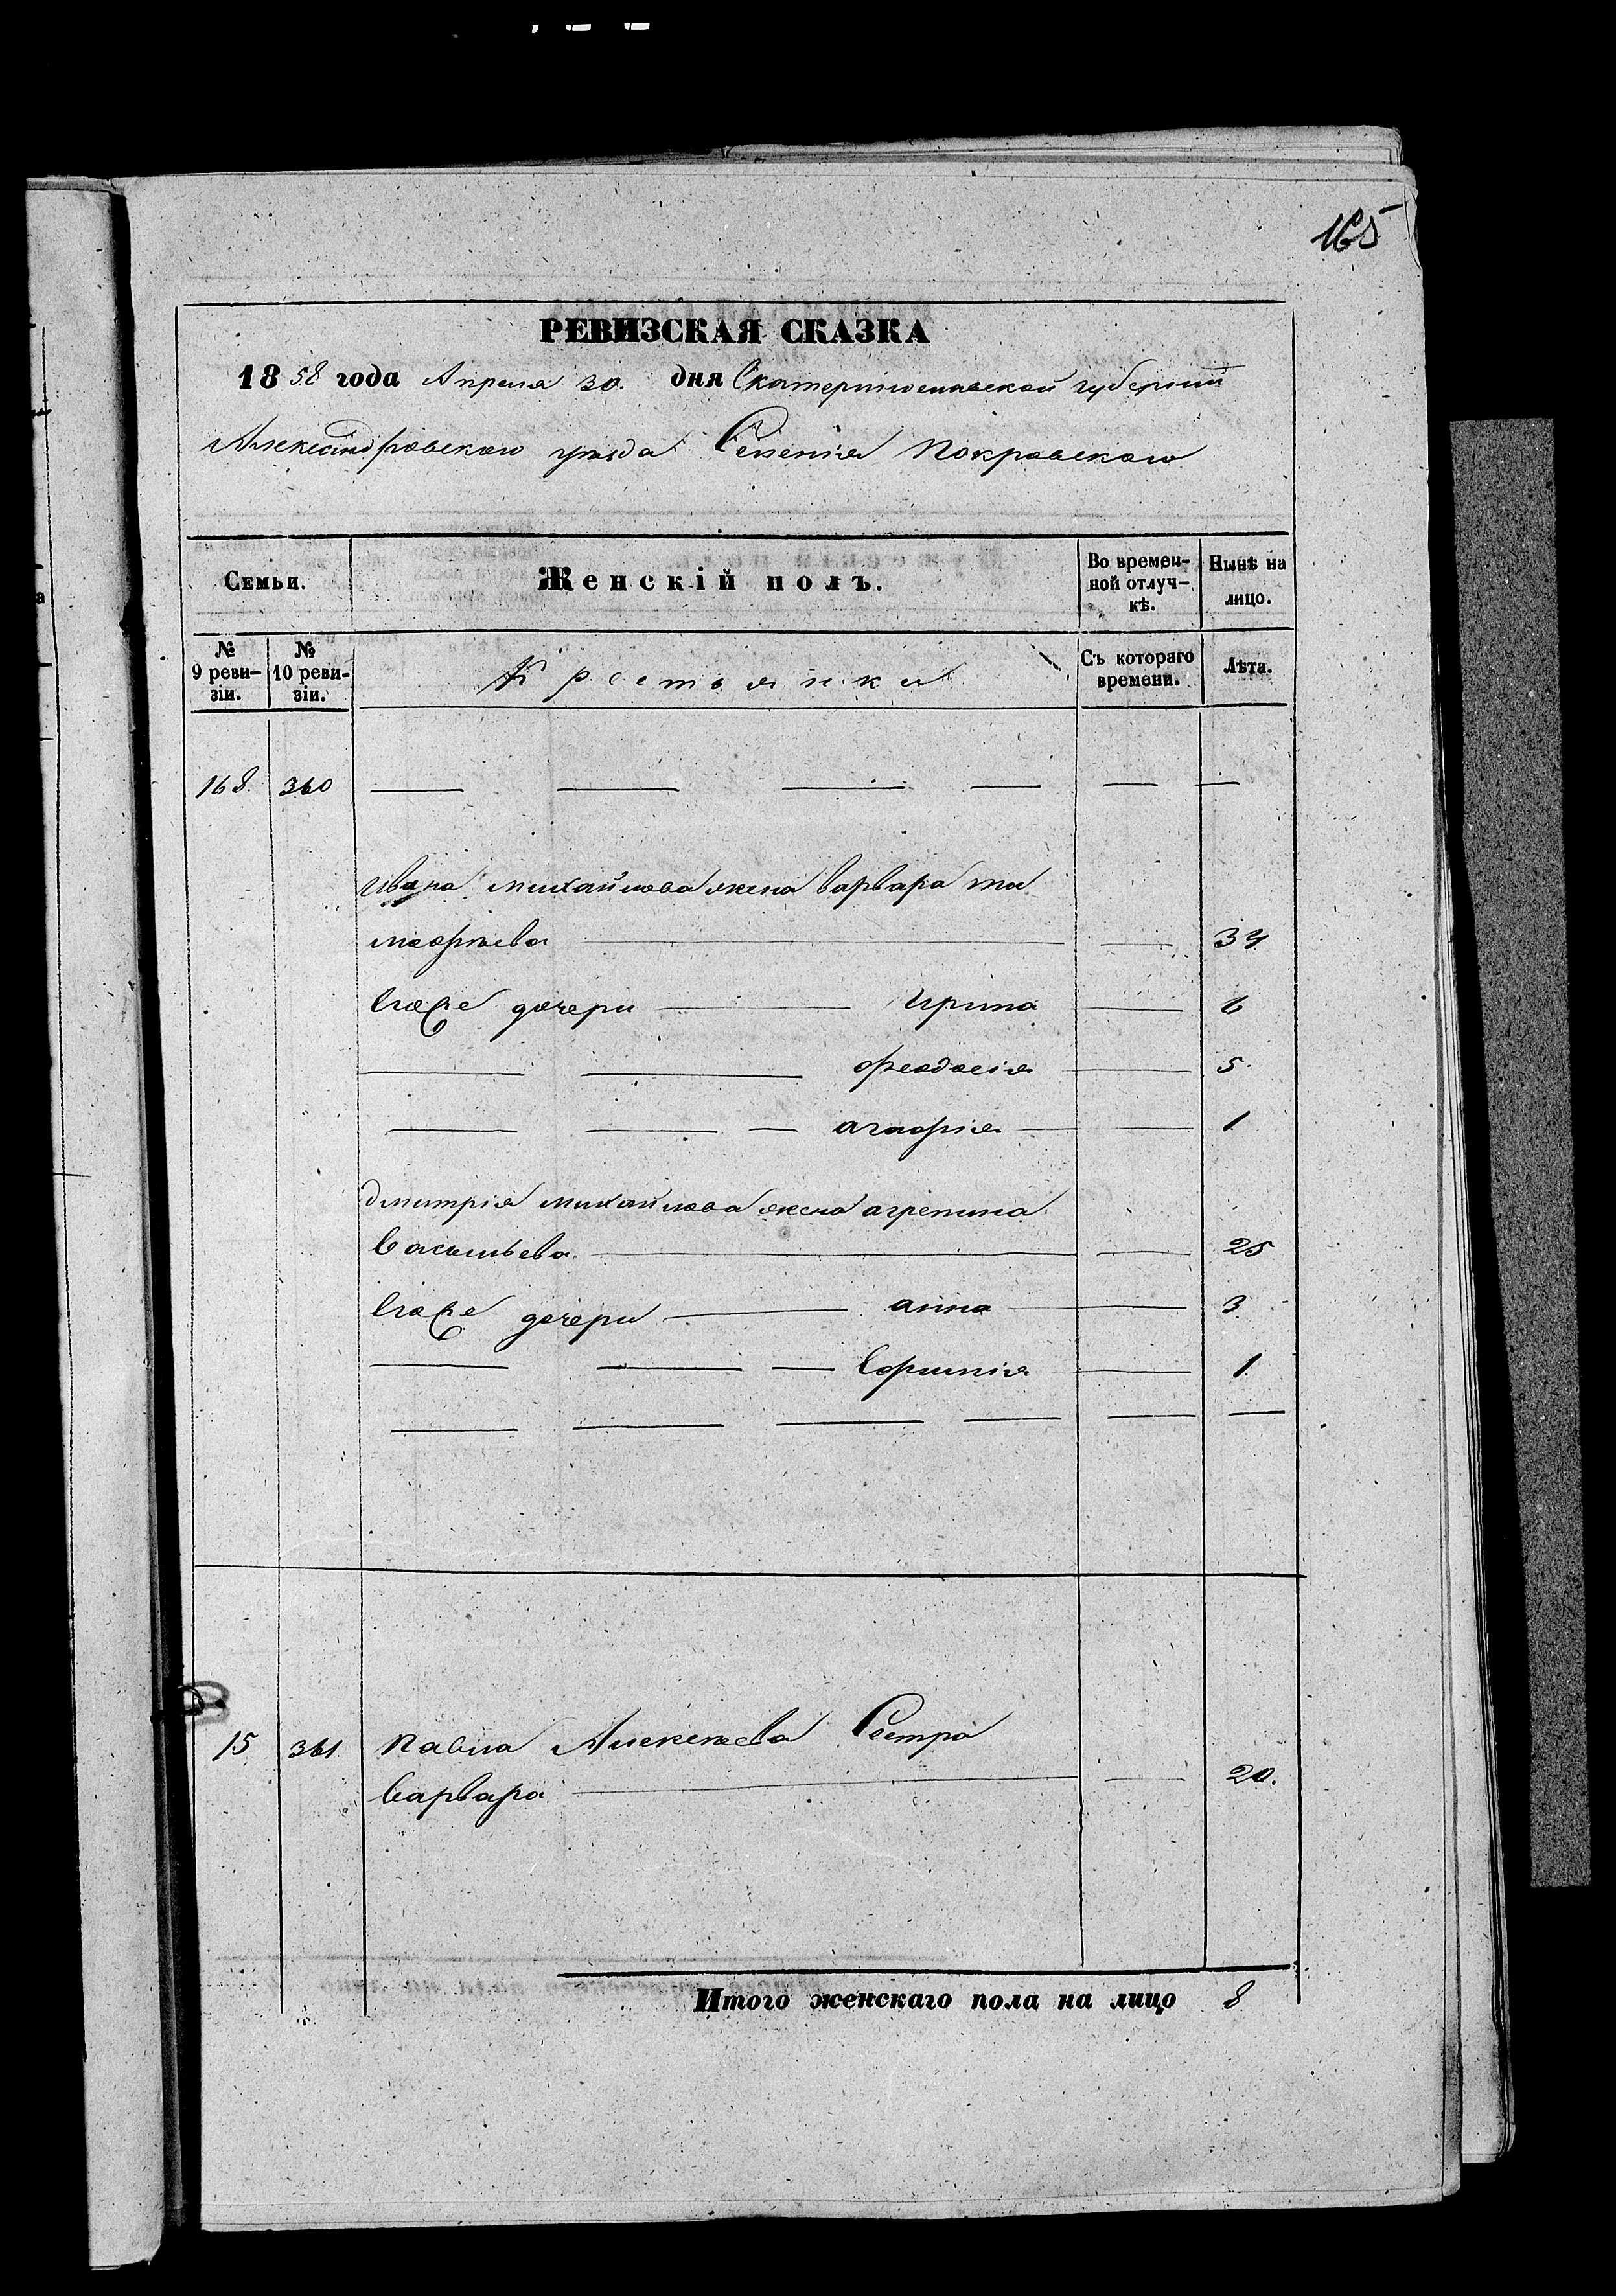 165
РЕВИЗСКАЯ СКАЗКА
1858 года Апреля 30. дня Екатеринославской губернии
Александровского уезда Селения Покровского
Семьи.
Женскій полъ.
Во времен-
ной отлуч-
кѣ.
Нынѣ на
лицо.
№
9 реви-
зіи.
№
10 реви-
зіи.
Крестьянки
Съ котораго
времени.
Лѣта.
168. 360
Ивана Михайлова жена варвара ти
мофѣева 34
Ихже дочери Ирина 6
феодосія 5.
агафія 1
дмитрія Михайлова жена агрепина
Васильева. 25
Ихже дочери анна 3
Евфимія 1
15 361. Павла Алексѣева Сестра
варвара 20.
Итого женскаго пола на лицо 8